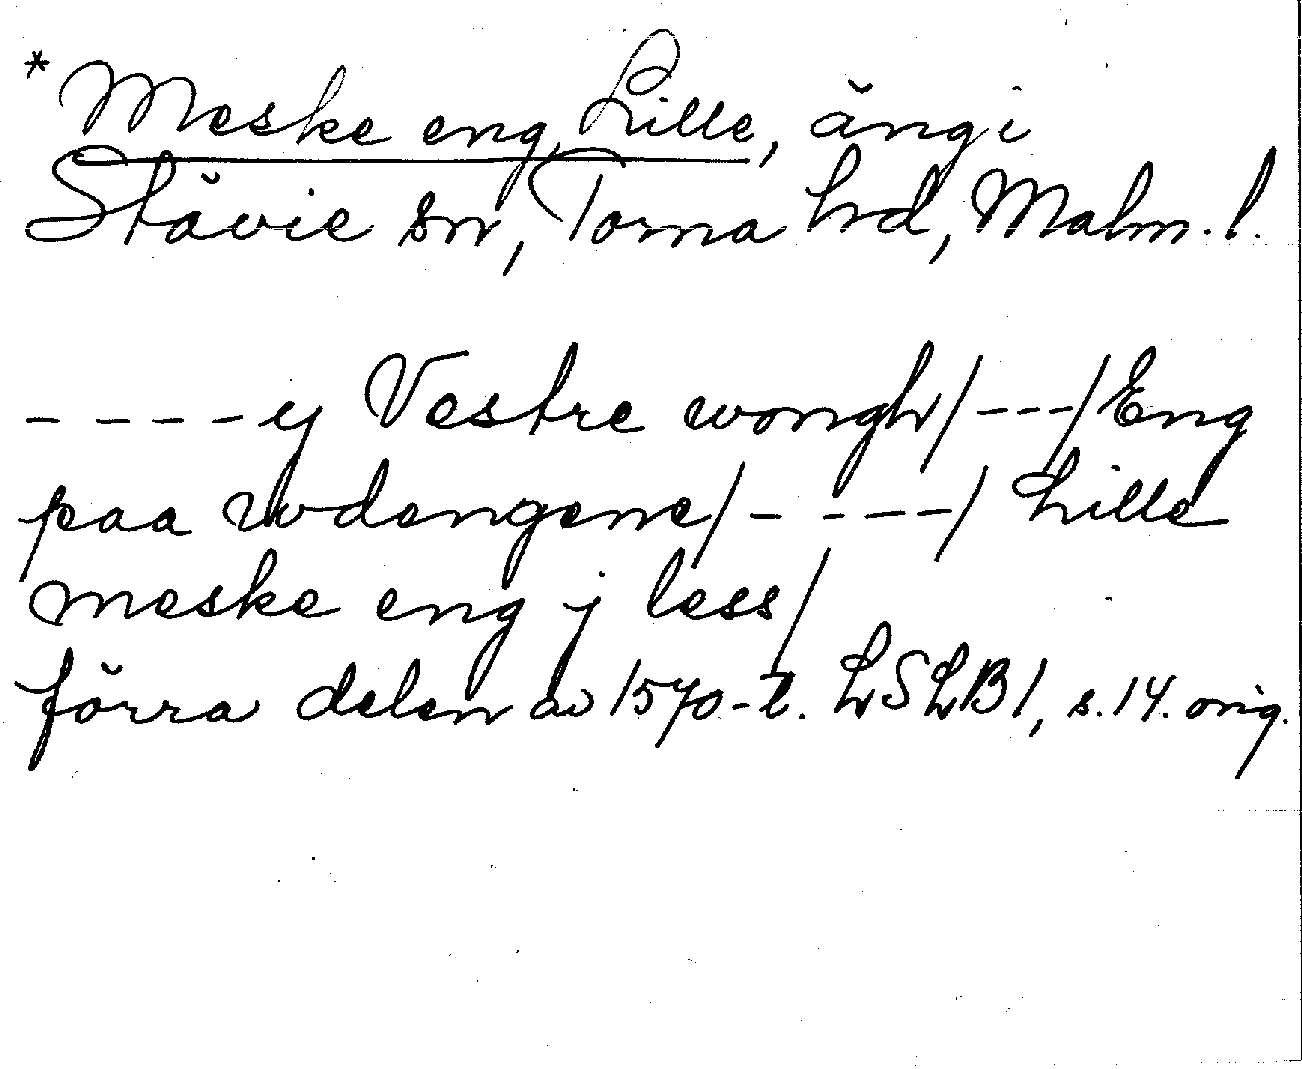 *Meske eng, Lille, äng i
Stävie sn, Torna hd, Malm. l.
- - - - y Vestre wongh/---/Eng
paa wdengene/- ---/ Lille
meske eng j less/
förra delen av 1570-t. LSLB1, s.14. orig.